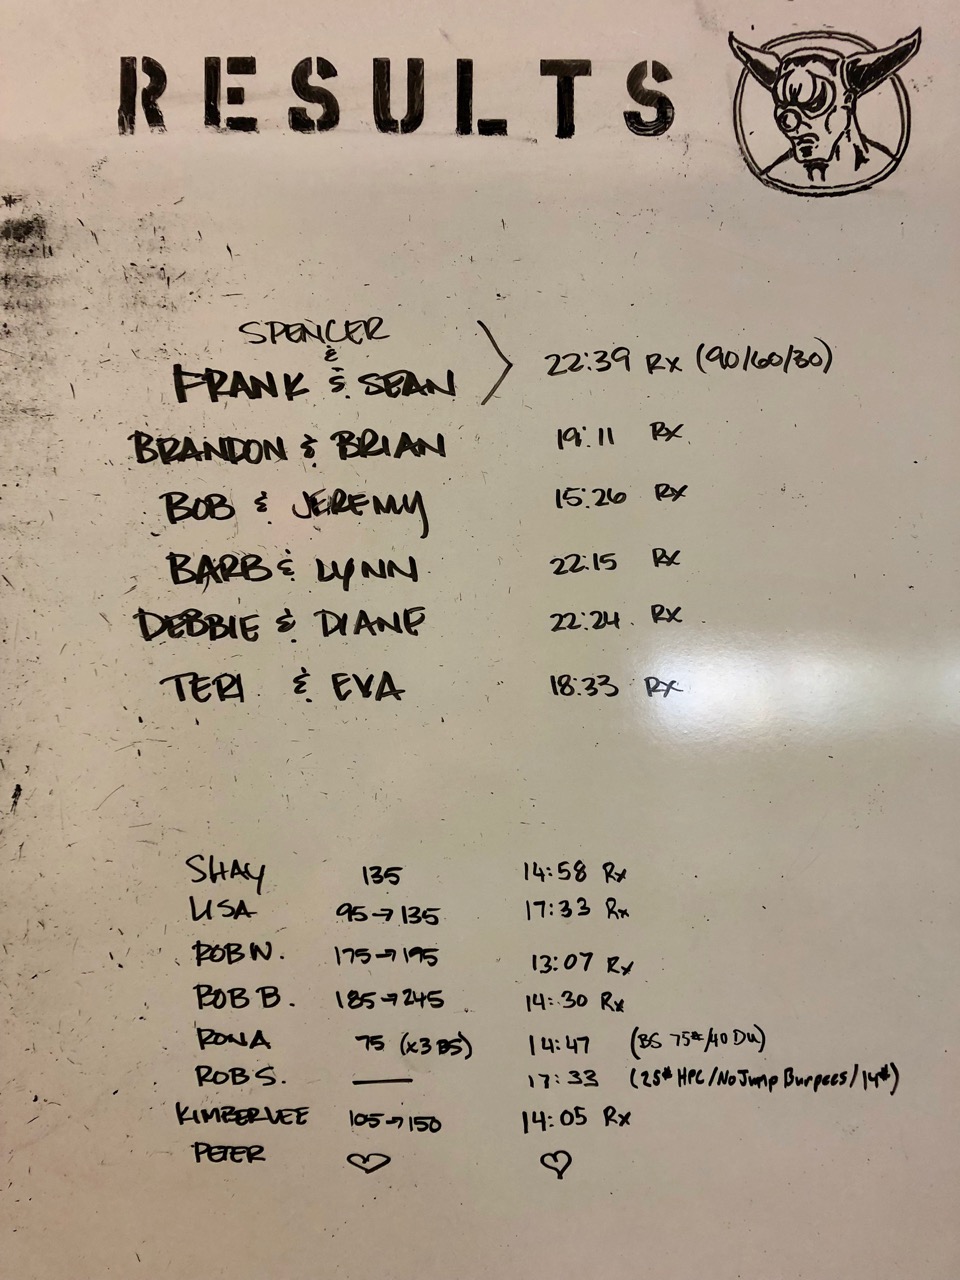 RESULTS
SPENCER
&
FRANK & SEAN 22:39 Rx (90/60/30)
BRANDON & BRIAN 19:11 Rx
BOB & JEREMY 15:26 Rx
BARB & LYNN 22:15 Rx
DEBBIE & DIANE 22:24 Rx
TERI & EVA 18:33 Rx
SHAY 135 14:58 Rx
LISA 95→135 17:33 Rx
ROB N. 175→195 13:07 Rx
BOB B. 185→245 14:30 Rx
RONA 75 (x3 BS) 14:47 (BS 75#/40 DU)
ROB S. — 17:33 (25# HPC/No Jump Burpees/14#)
KIMBERLEE 105→150 14:05 Rx
PETER ♡ ♡